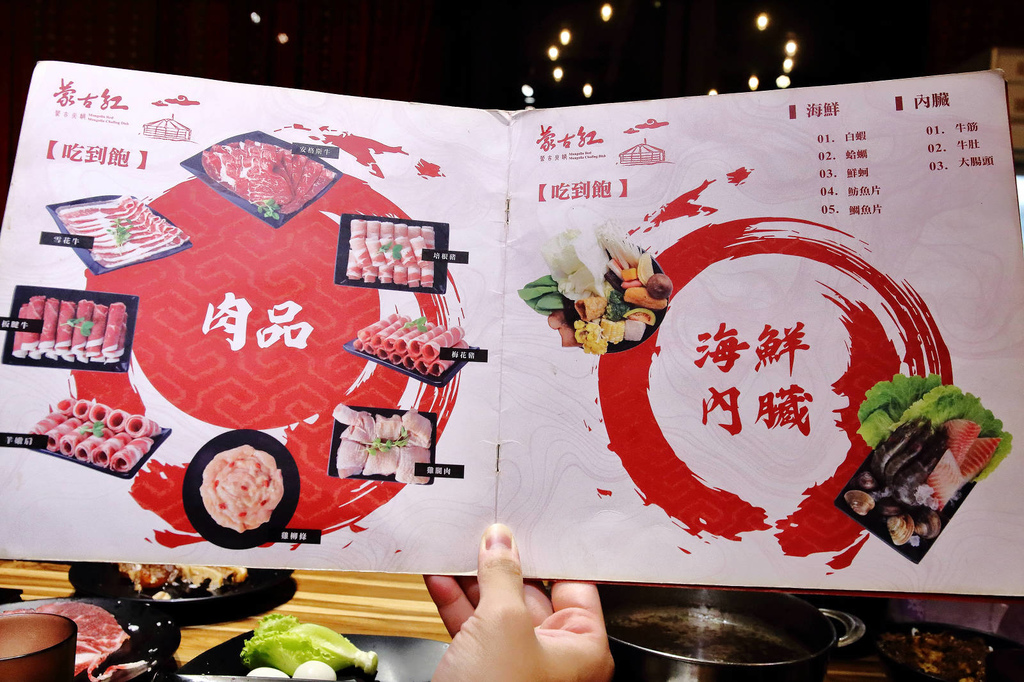 蒙古紅
蒙古炭鍋
Mongolia Red
Mongolia Chafing Dish
【吃到飽】
安格斯牛
雪花牛
培根豬
板腱牛
梅花豬
羊嫩肩
雞腿肉
雞柳條
肉品
蒙古紅
蒙古炭鍋
Mongolia Red
Mongolia Chafing Dish
【吃到飽】
海鮮
01. 白蝦
02. 蛤蠣
03. 鮮蚵
04. 魴魚片
05. 鯛魚片
內臟
01. 牛筋
02. 牛肚
03. 大腸頭
海鮮
內臟